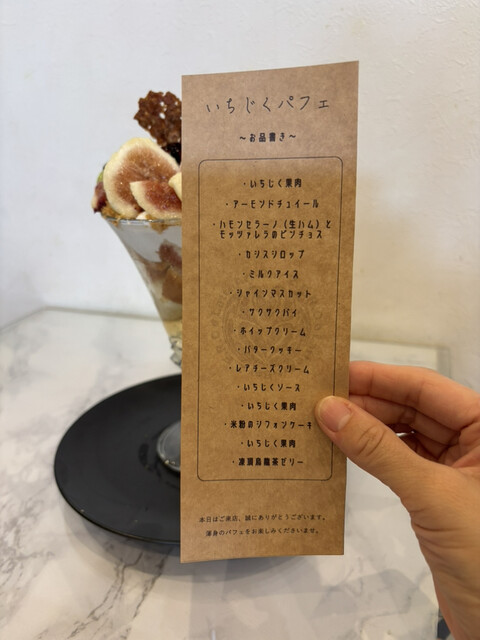 いちじくパフェ
～お品書き～
・いちじく果肉
・アーモンドチュイール
・ハモンセラーノ（生ハム）と
モッツァレラのピンチョス
・カシスシロップ
・ミルクアイス
・シャインマスカット
・サクサクパイ
・ホイップクリーム
・バタークッキー
・レアチーズクリーム
・いちじくソース
・いちじく果肉
・米粉のシフォンケーキ
・いちじく果肉
・凍頂烏龍茶ゼリー
本日はご来店、誠にありがとうございます。
渾身のパフェをお楽しみくださいませ。